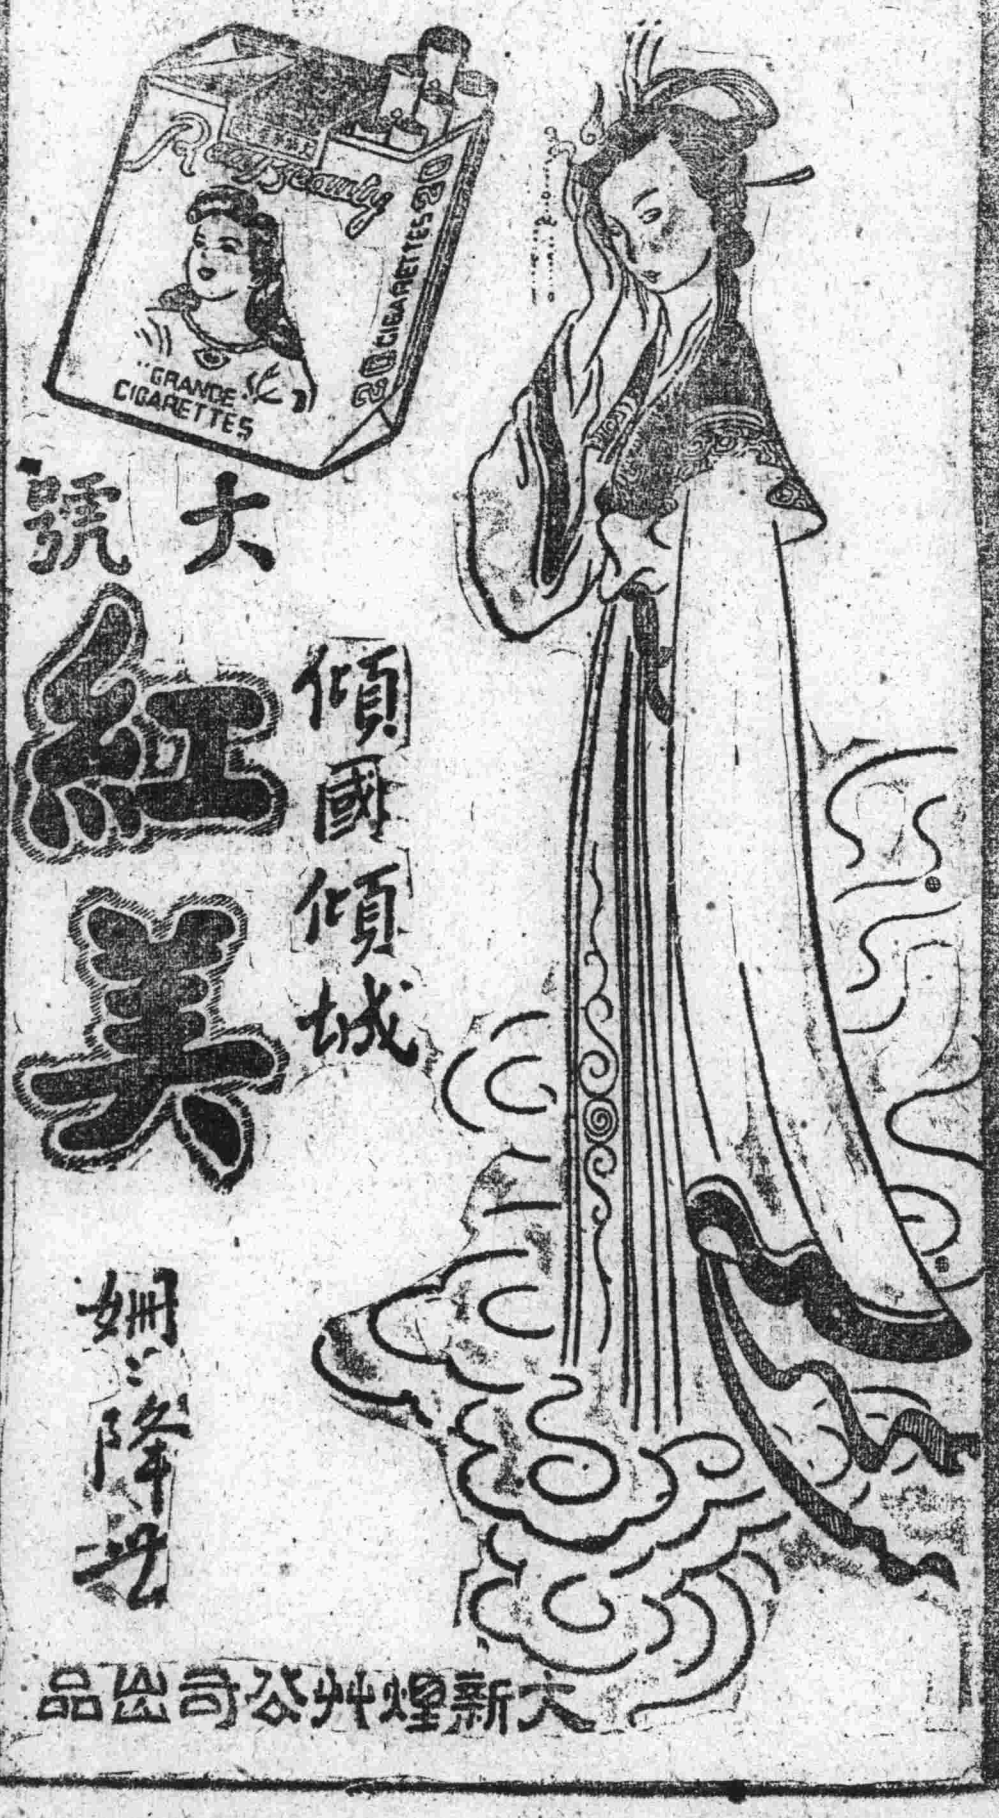 RedBeauty
20 CIGARETTES 20
"GRANDE"
CIGARETTES
大號
紅美
傾國傾城
姍〻降世
大新煙艸公司出品